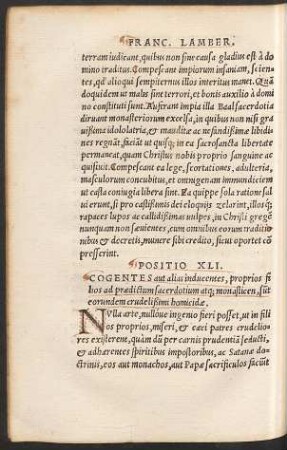 FRANC. LAMBER.
terram iudicant, quibus non sine causa gladius est à do
mino traditus. Compescant impiorum insaniam, scien-
tes, qd̃ alioqui sempiternus illos interitus manet. Quã
doquidem ut malis sint terrori, et bonis auxilio à domi
no constituti sunt. Auferant impia illa Baal sacerdotia
diruant monasteriorum excelsa, in quibus non nisi gra
uissima idololatria, & maudite ac nefandissimæ libidi
nes regnãt, faciãt ut quisq; in ea sacrosancta libertate
permaneat, quam Christus nobis proprio sanguine ac
quisiuit. Compescant ea lege, scortationes, adulteria,
masculorum concubitus, et omnigenam immundiciem
ut casta coniugia libera sint. Ea quippe sola ratione sal
ui erunt, si pro castissimis dei eloquijs zelarint, illosq;
rapaces lupos ac callidissimas uulpes, in Christi gregẽ
nunquam non sæuientes, cum omnibus eorum traditio
nibus & decretis, munere sibi credito, sicut oportet cõ
presserint.
POSITIO XLI.
COGENTES aut alias inducentes, proprios fi
lios ad prædictum sacerdotium atq; monasticen, sũt
eorundem crudelissimi homicidæ.
NVlla arte, nulloue ingenio fieri posset, ut in fil
ios proprios, miseri, & cæci patres crudelio
res existerent, quàm dum per carnis prudentiã seducti,
& adhærentes spiritibus impostoribus, ac Satanæ do
ctrinis, eos aut monachos, aut Papæ sacrificulos faciũt